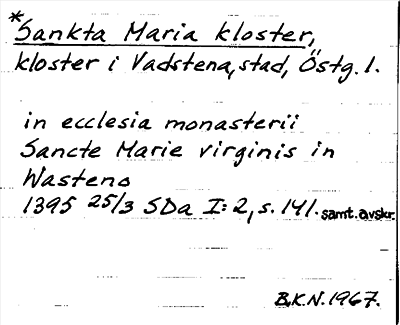 *Sankta Maria kloster,
kloster i Vadstena, stad, Östg. l.
in ecclesia monasterii
Sancte Marie virginis in
Wasteno
1395 25/3 SDa I:2, s. 141. samt. avskr.
B.K.N. 1967.